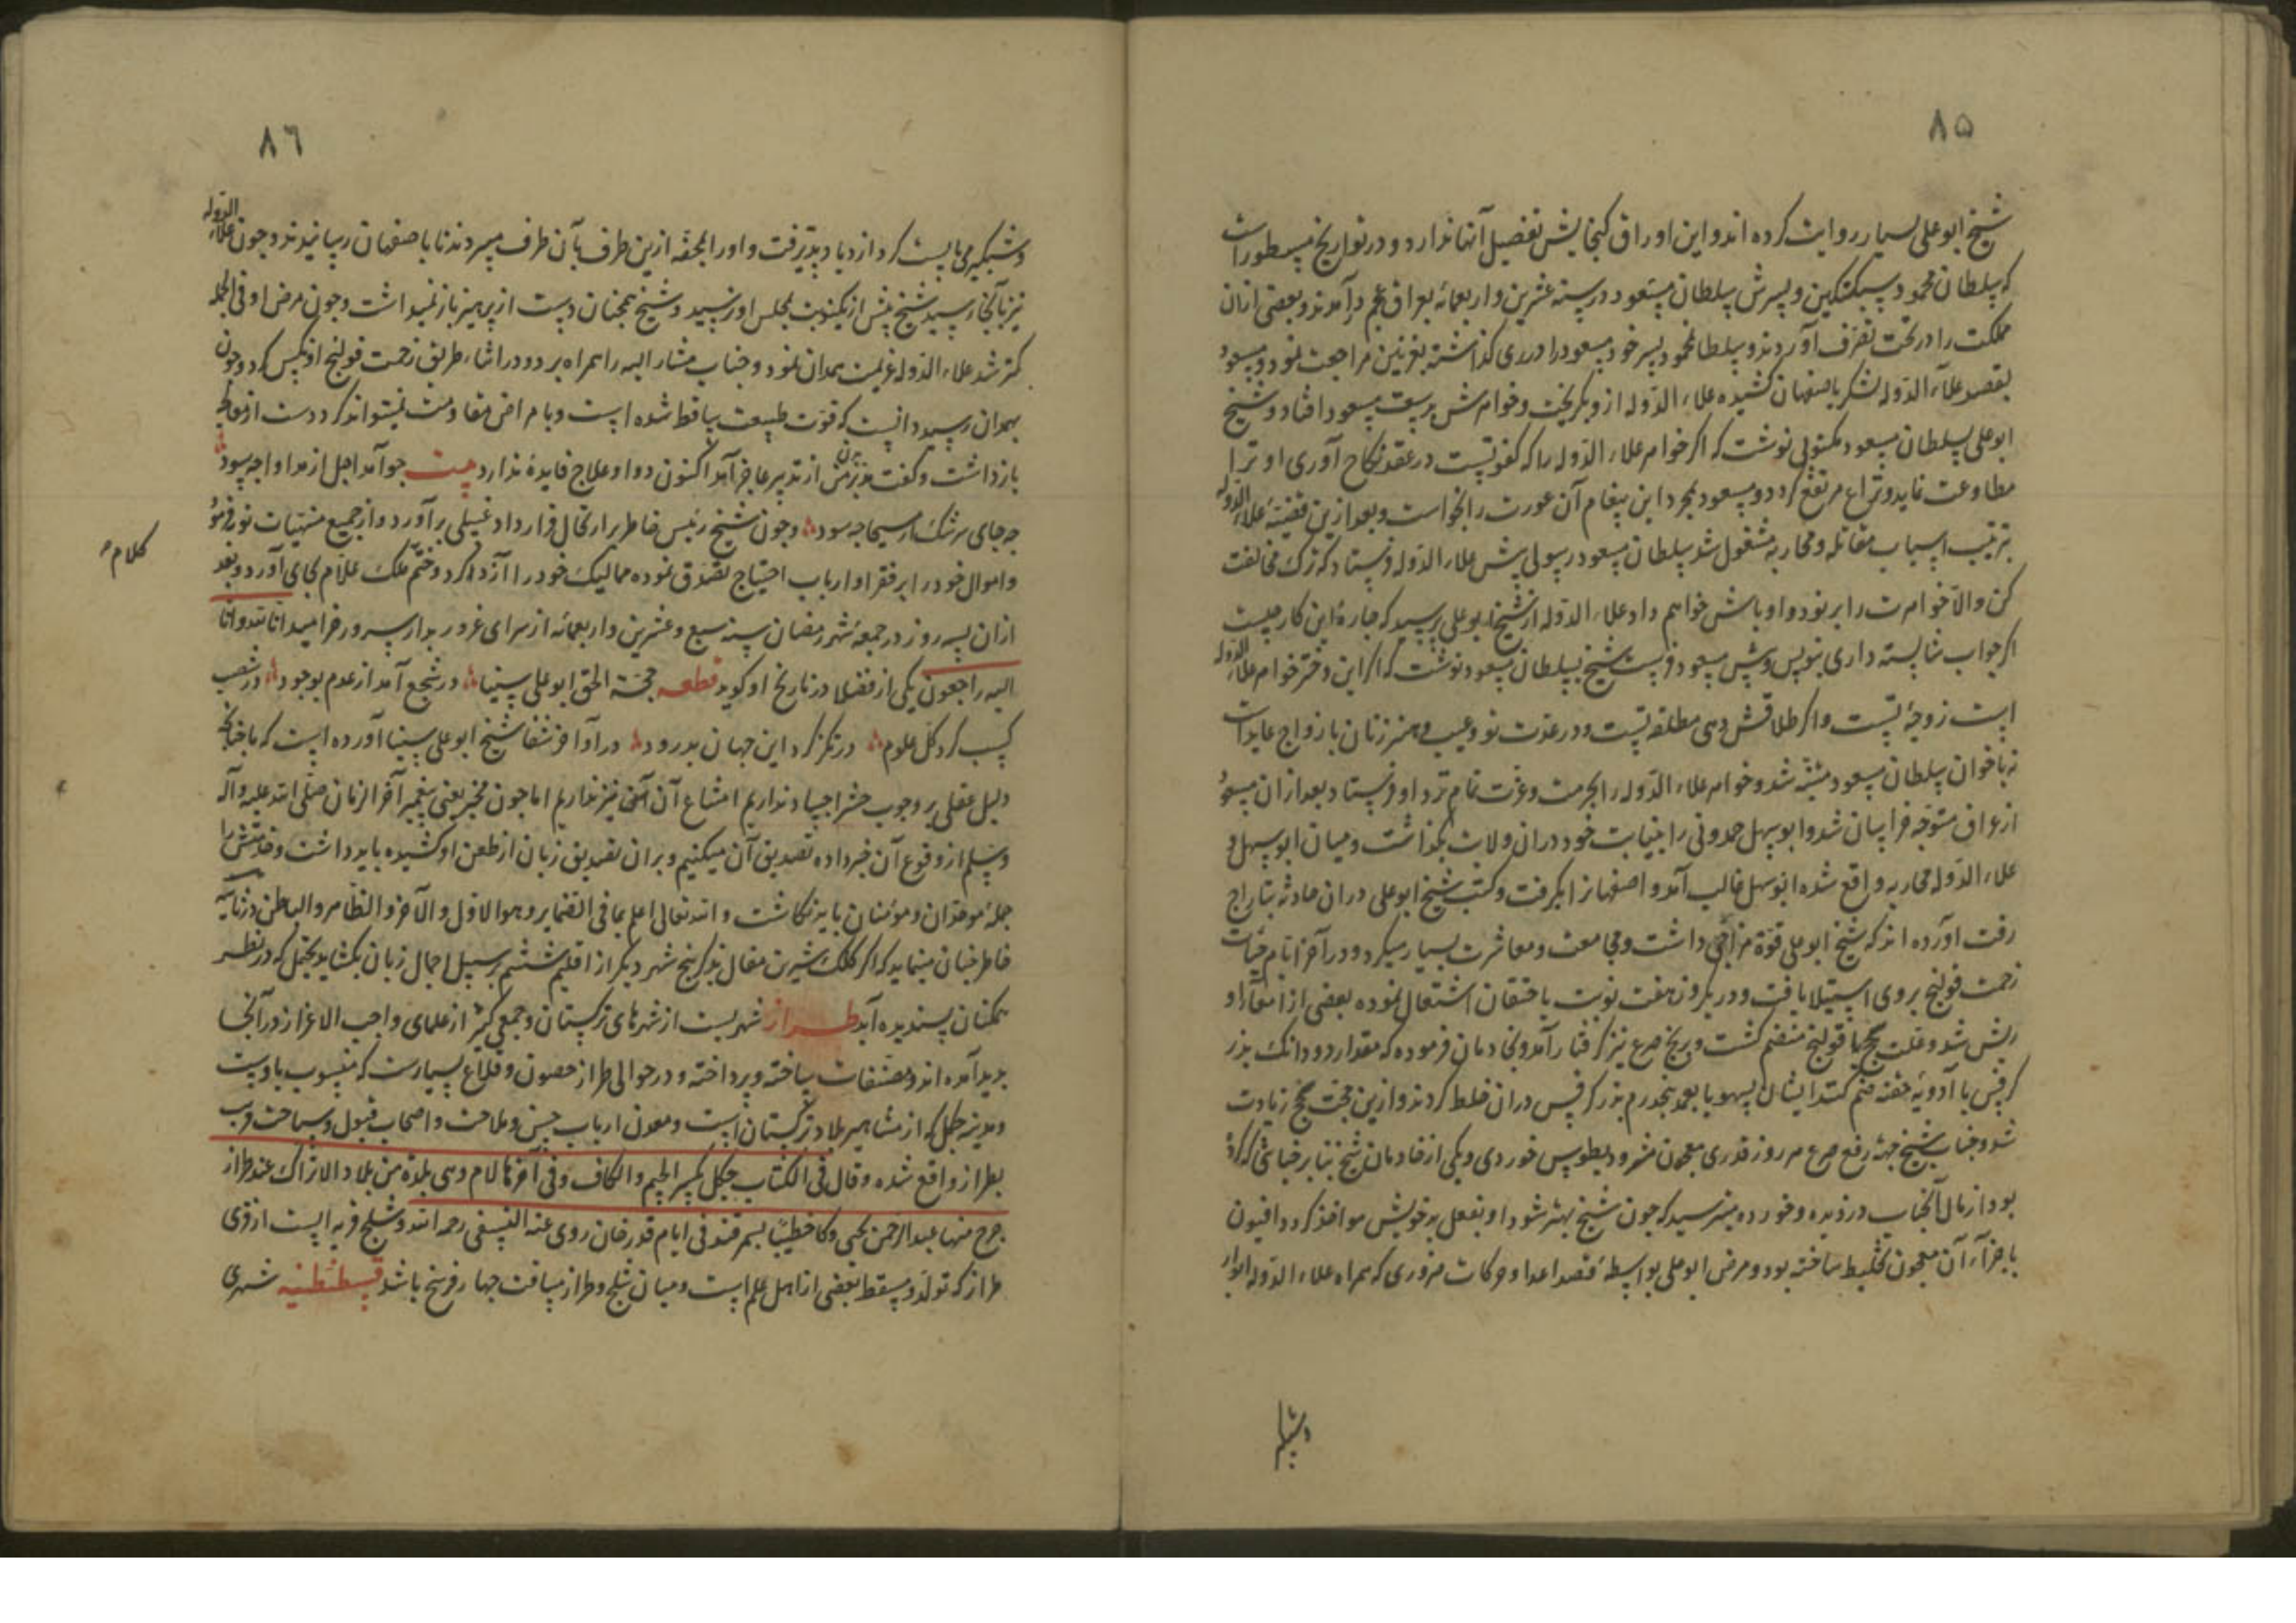 ٨٥
شیخ ابو علی بسیار روایت کرده اند و این اوراق کنجایش تفصیل آنها ندارد و در تواریخ مسطور است
که سلطان محمود سبکتکین و پسرش سلطان مسعود در سنه عشرین و اربعمائه بعراق عجم درآمدند و بعضی ازان
مملکت را در تحت تصرف آوردند و سلطان محمود پسر خود مسعود را در ری کذاشته بغزنین مراجعت نمود و مسعود
بقصد علاء الدوله لشکر باصفهان کشیده علاء الدوله ازو بکریخت و خواهرش بدست مسعود افتاد و شیخ
ابو علی بسلطان مسعود مکتوبی نوشت که اکر خواهر علاء الدوله را که کفو تست در عقد نکاح آوری او ترا
مطاوعت نماید و نزاع مرتفع کردد و مسعود بمجرد این پیغام آن عورت را بخواست و بعد ازین قضیه علاء الدوله
بترتیب اسباب مقاتله و محاربه مشغول شد سلطان مسعود رسولی پیش علاء الدوله فرستاد که ترک مخالفت
کن والا خواهرت را برنود و اوباش خواهم داد علاء الدوله از شیخ ابو علی پرسید که چارهٔ این کار چیست
اکر جواب شایسته داری بنویس و پیش مسعود فرست شیخ بسلطان مسعود نوشت که اکر این دختر خواهر علاء الدوله
است زوجهٔ تست و اکر طلاقش دهی مطلقه تست و در عدت تو و عیب و هنر زنان بازواج عاید است
نه باخوان سلطان مسعود متنبه شد و خواهر علاء الدوله را بحرمت و عزت تمام نزد او فرستاد بعد ازان مسعود
از عراق متوجه خراسان شد و ابو سهل حمدونی را بنیابت خود دران ولایت بکذاشت و میان ابو سهل و
علاء الدوله محاربه واقع شده ابو سهل غالب آمد و اصفهانرا بکرفت و کتب شیخ ابو علی دران حادثه بتاراج
رفت آورده اند که شیخ ابو علی قوة مزاجی داشت و مجامعت و معاشرت بسیار میکرد و در آخر ایام حیات
زحمت قولنج بر وی استیلا یافت و در یکروز هفت نوبت باحتقان اشتغال نموده بعضی از امعاء او
ریش شد و علت سحج با قولنج منضم کشت و برنج صرع نیز کرفتار آمد و بخادمان فرموده که مقدار دو دانک بذر
کرفس با ادویهٔ حقنه ضم کنند ایشان بسهو یا بعمد پنجدرم بذر کرفس دران خلط کردند و ازین جهت سحج زیادت
شد و جناب شیخ جهة رفع صرع هر روز قدری معجون مثرودیطوس خوردی و یکی از خادمان شیخ بنا بر خیانتی که کرده
بود از مال آنجناب دزدیده و خورده میترسید که چون شیخ بهتر شود او بفعل بد خویش مواخذ کردد افیون
باجزاء آن معجون تخلیط ساخته بود و مرض ابو علی بواسطهٔ قصد اعدا و حرکات ضروری که همراه علاء الدوله ابو
٨٦
و شبکیر می بایست کرد ازدیاد پذیرفت و او را بمحفه ازین طرف بآن طرف میبردند تا باصفهان رسانیدند و چون علاء الدوله
نیز بآنجا رسید شیخ پیش از یکنوبت بمجلس او نرسید و شیخ همچنان دست از پرهیز باز نمیداشت و چون مرض او فی الجمله
کمتر شد علاء الدوله عزیمت همدان نمود و جناب مشار الیه را همراه برد و در اثناء طریق زحمت قولنج او نکس کرد و چون
بهمدان رسید دانست که قوت طبیعت ساقط شده است و با مرض مقاومت نمیتواند کرد دست از معالجه
بازداشت و کفت مدبر بدن من از تدبیر عاجز آمد اکنون دوا و علاج فایده ندارد بیت چو آمد اجل از مداوا چه سود
چه جای سرشک از مسیحا چه سود و چون شیخ رئیس خاطر بر ارتحال قرار داد غسلی برآورد و از جمیع منهیات توبه فرمود
و اموال خود را بر فقرا و ارباب احتیاج تصدق نموده ممالیک خود را آزاد کرد و ختم ملک علام بجای آورد و بعد
کلام
ازان بسه روز در جمعهٔ شهر رمضان سنه سبع و عشرین و اربعمائه از سرای غرور بدار سرور خرامید انا لله و انا
الیه راجعون یکی از فضلا در تاریخ او کوید قطعه حجة الحق ابو علی سینا در شجع آمد از عدم بوجود در شصا
کسب کرد کل علوم در تکز کرد این جهان بدرود در آواخر شفا شیخ ابو علی سینا آورده است که ما چنانکه
دلیل عقلی بر وجوب حشر اجساد نداریم امتناع آن آسی نیز نداریم اما چون مخبر یعنی پیغمبر آخر الزمان صلی الله علیه و آله
و سلم از وقوع آن خبر داده تصدیق آن میکنیم و بران تصدیق زبان از طعن او کشیده باید داشت
جملهٔ موحدان و مؤمنان باید نکاشت و الله تعالی اعلم بما فی الضمایر و هو الاول و الآخر و الظاهر و الباطن
خاطر چنان مینماید که اکر کلک شیرین مقال بذکر پنج شهر دیکر از اقلیم ششم بر سبیل اجمال زبان بکشاید یحتمل که در نظر
همکنان پسندیده آید طراز شهریست از شهرهای ترکستان و جمعی کثیر از علمای واجب الاعزاز در آنجا
پدید آمده اند و مصنفات ساخته و پرداخته و در حوالی طراز حصون و قلاع بسیارست که منسوب باوست
و مدینه جکل که از مشاهیر بلاد ترکستان است و معدن ارباب حسن و ملاحت و اصحاب قبول و سماحت قریب
بطراز واقع شده و قال فی الکتاب جکل بکسر الجیم و الکاف و فی آخرها لام و هی بلدة من بلاد الاتراک عند طراز
خرج منها عبد الرحمن یحیی و کان خطیبا بسمرقند فی ایام قدرخان روی عنه النسفی رحمه الله و شلج قریه ایست از قری
طراز که تولد و مسقط بعضی از اهل علم است و میان شلج و طراز مسافت چهار فرسخ باشد قسطنطنیه شهری